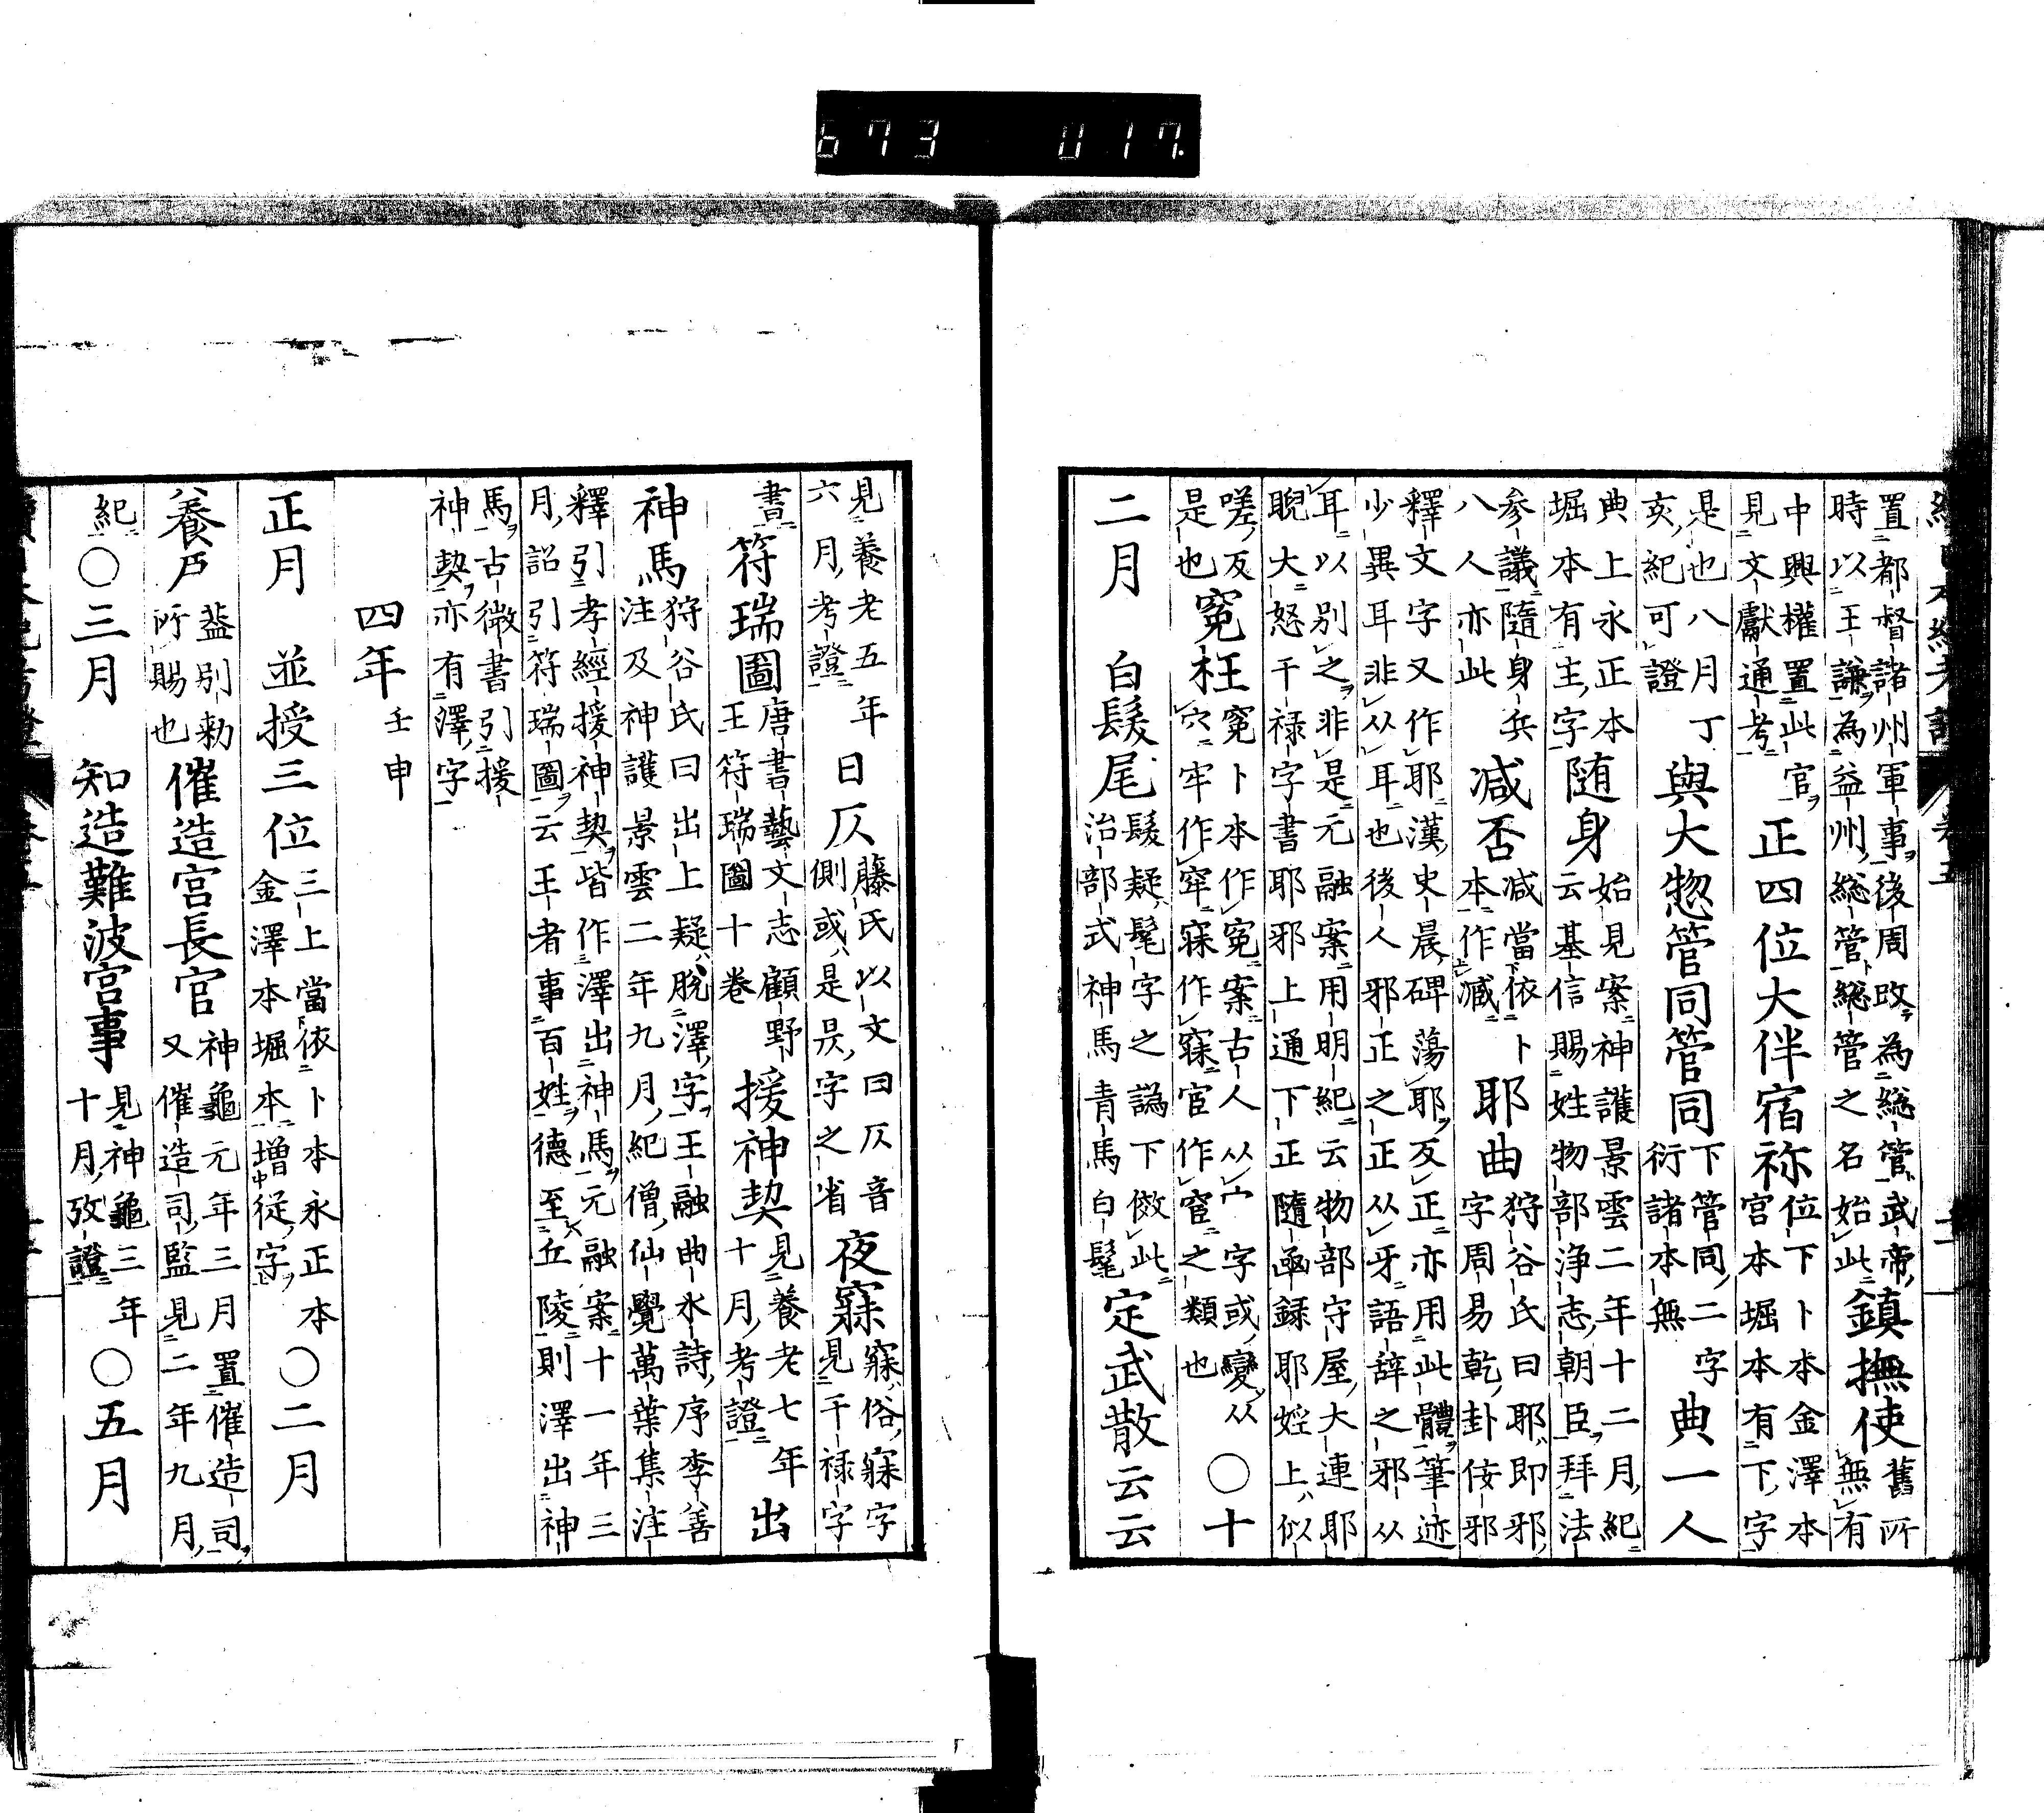 673 017.
置都督諸州軍事後周改為総管武帝
時以王謙為益州総管総管之名始此鎮撫使舊所
無有
中興權置此官正四位大伴宿祢位下卜本金澤本
見文獻通考宮本堀本有下字
是也八月丁
亥紀可證與大惣管同管同下管同二字
衍諸本無典一人
典上永正本
堀本有主字随身始見案神護景雲二年十二月紀
云基信賜姓物部浄志朝臣拜法
参議隨身兵
八人亦此減否减當依卜
本作减耶曲狩谷氏曰耶即邪
字周易乾卦侫邪
釋文字又作耶漢史晨碑蕩耶反正亦用此體筆迹
少異耳非从耳也後人邪正之正从牙語辞之邪从
耳以別之非是元融案用明紀云物部守屋大連耶
睨大怒干禄字書耶邪上通下正隨函録耶婬上似
嗟反
是也寃枉寃卜本作寃案古人从宀字或變从
穴牢作窂寐作寱宦作窅之類也〇十
二月 白髮尾髮疑髦字之譌下傚此
治部式神馬青馬白髦定武散云云
見養老五年
六月考證日仄藤氏以文曰仄音
側或是昃字之省夜寐寐俗寐字
見干禄字
書符瑞圖唐書藝文志顧野
王符瑞圖十卷援神契見養老七年
十月考證出
神馬狩谷氏曰出上疑脫澤字王融曲水詩序李善
注及神護景雲二年九月紀僧仙覺萬葉集注
釋引孝經援神契皆作澤出神馬元融案十一年三
月詔引符瑞圖云王者事百姓德至丘陵則澤出神
馬古微書引援
神契亦有澤字
四年壬申
正月 並授三位三上當依卜本永正本
金澤本堀本增從字〇二月
養戸葢別勅
所賜也催造宮長官神龜元年三月置催造司
又催造司監見二年九月
紀〇三月 知造難波宮事見神龜三年
十月攷證〇五月